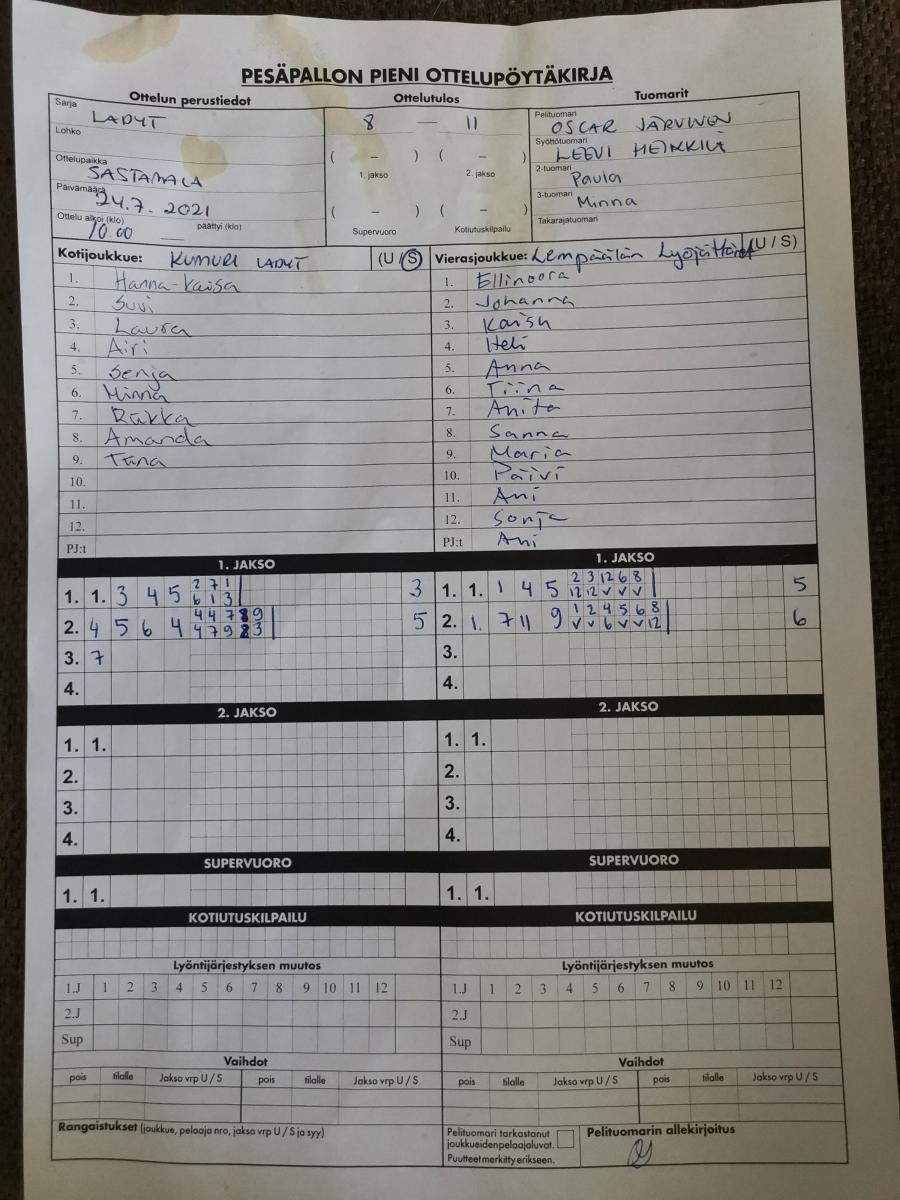 PESÄPALLON PIENI OTTELUPÖYTÄKIRJA
Ottelun perustiedot Ottelutulos Tuomarit
Sarja LADYT
Lohko
Ottelupaikka SASTAMALA
Päivämäärä 24.7. 2021
Ottelu alkoi (klo) 10.00 päättyi (klo)
8 — 11
( – ) ( – )
1. jakso 2. jakso
( – ) ( – )
Supervuoro Kotiutuskilpailu
Pelituomari OSCAR JÄRVINEN
Syöttötuomari LEEVI HEIKKILÄ
2-tuomari Paula
3-tuomari Minna
Takarajatuomari
Kotijoukkue: KUMURI LADYT (U / S)
1. Hanna-Kaisa
2. Suvi
3. Laura
4. Airi
5. Senja
6. Minna
7. Riikka
8. Amanda
9. Tiina
10.
11.
12.
PJ:t
Vierasjoukkue: Lempäälän Lyöjättäret (U / S)
1. Ellinoora
2. Johanna
3. Kaisu
4. Heli
5. Anna
6. Tiina
7. Anita
8. Sanna
9. Maria
10. Päivi
11. Ani
12. Sonja
PJ:t Ani
1. JAKSO 1. JAKSO
2 7 1 2 3 12 6 8
1. 1. 3 4 5 6 1 3 3 1. 1. 1 4 5 12 12 v v v 5
4 4 7 8 9 1 2 4 5 6 8
2. 4 5 6 4 4 7 9 2 3 5 2. 1. 7 11 9 v v 6 v v 12 6
3. 7 3.
4. 4.
2. JAKSO 2. JAKSO
1. 1. 1. 1.
2. 2.
3. 3.
4. 4.
SUPERVUORO SUPERVUORO
1. 1. 1. 1.
KOTIUTUSKILPAILU KOTIUTUSKILPAILU
Lyöntijärjestyksen muutos Lyöntijärjestyksen muutos
1.J 1 2 3 4 5 6 7 8 9 10 11 12 1.J 1 2 3 4 5 6 7 8 9 10 11 12
2.J 2.J
Sup Sup
Vaihdot Vaihdot
pois tilalle Jakso vrp U / S pois tilalle Jakso vrp U / S pois tilalle Jakso vrp U / S pois tilalle Jakso vrp U / S
Rangaistukset (joukkue, pelaaja nro, jakso vrp U / S ja syy)
Pelituomari tarkastanut
joukkueidenpelaajaluvat.
Puutteet merkitty erikseen.
Pelituomarin allekirjoitus